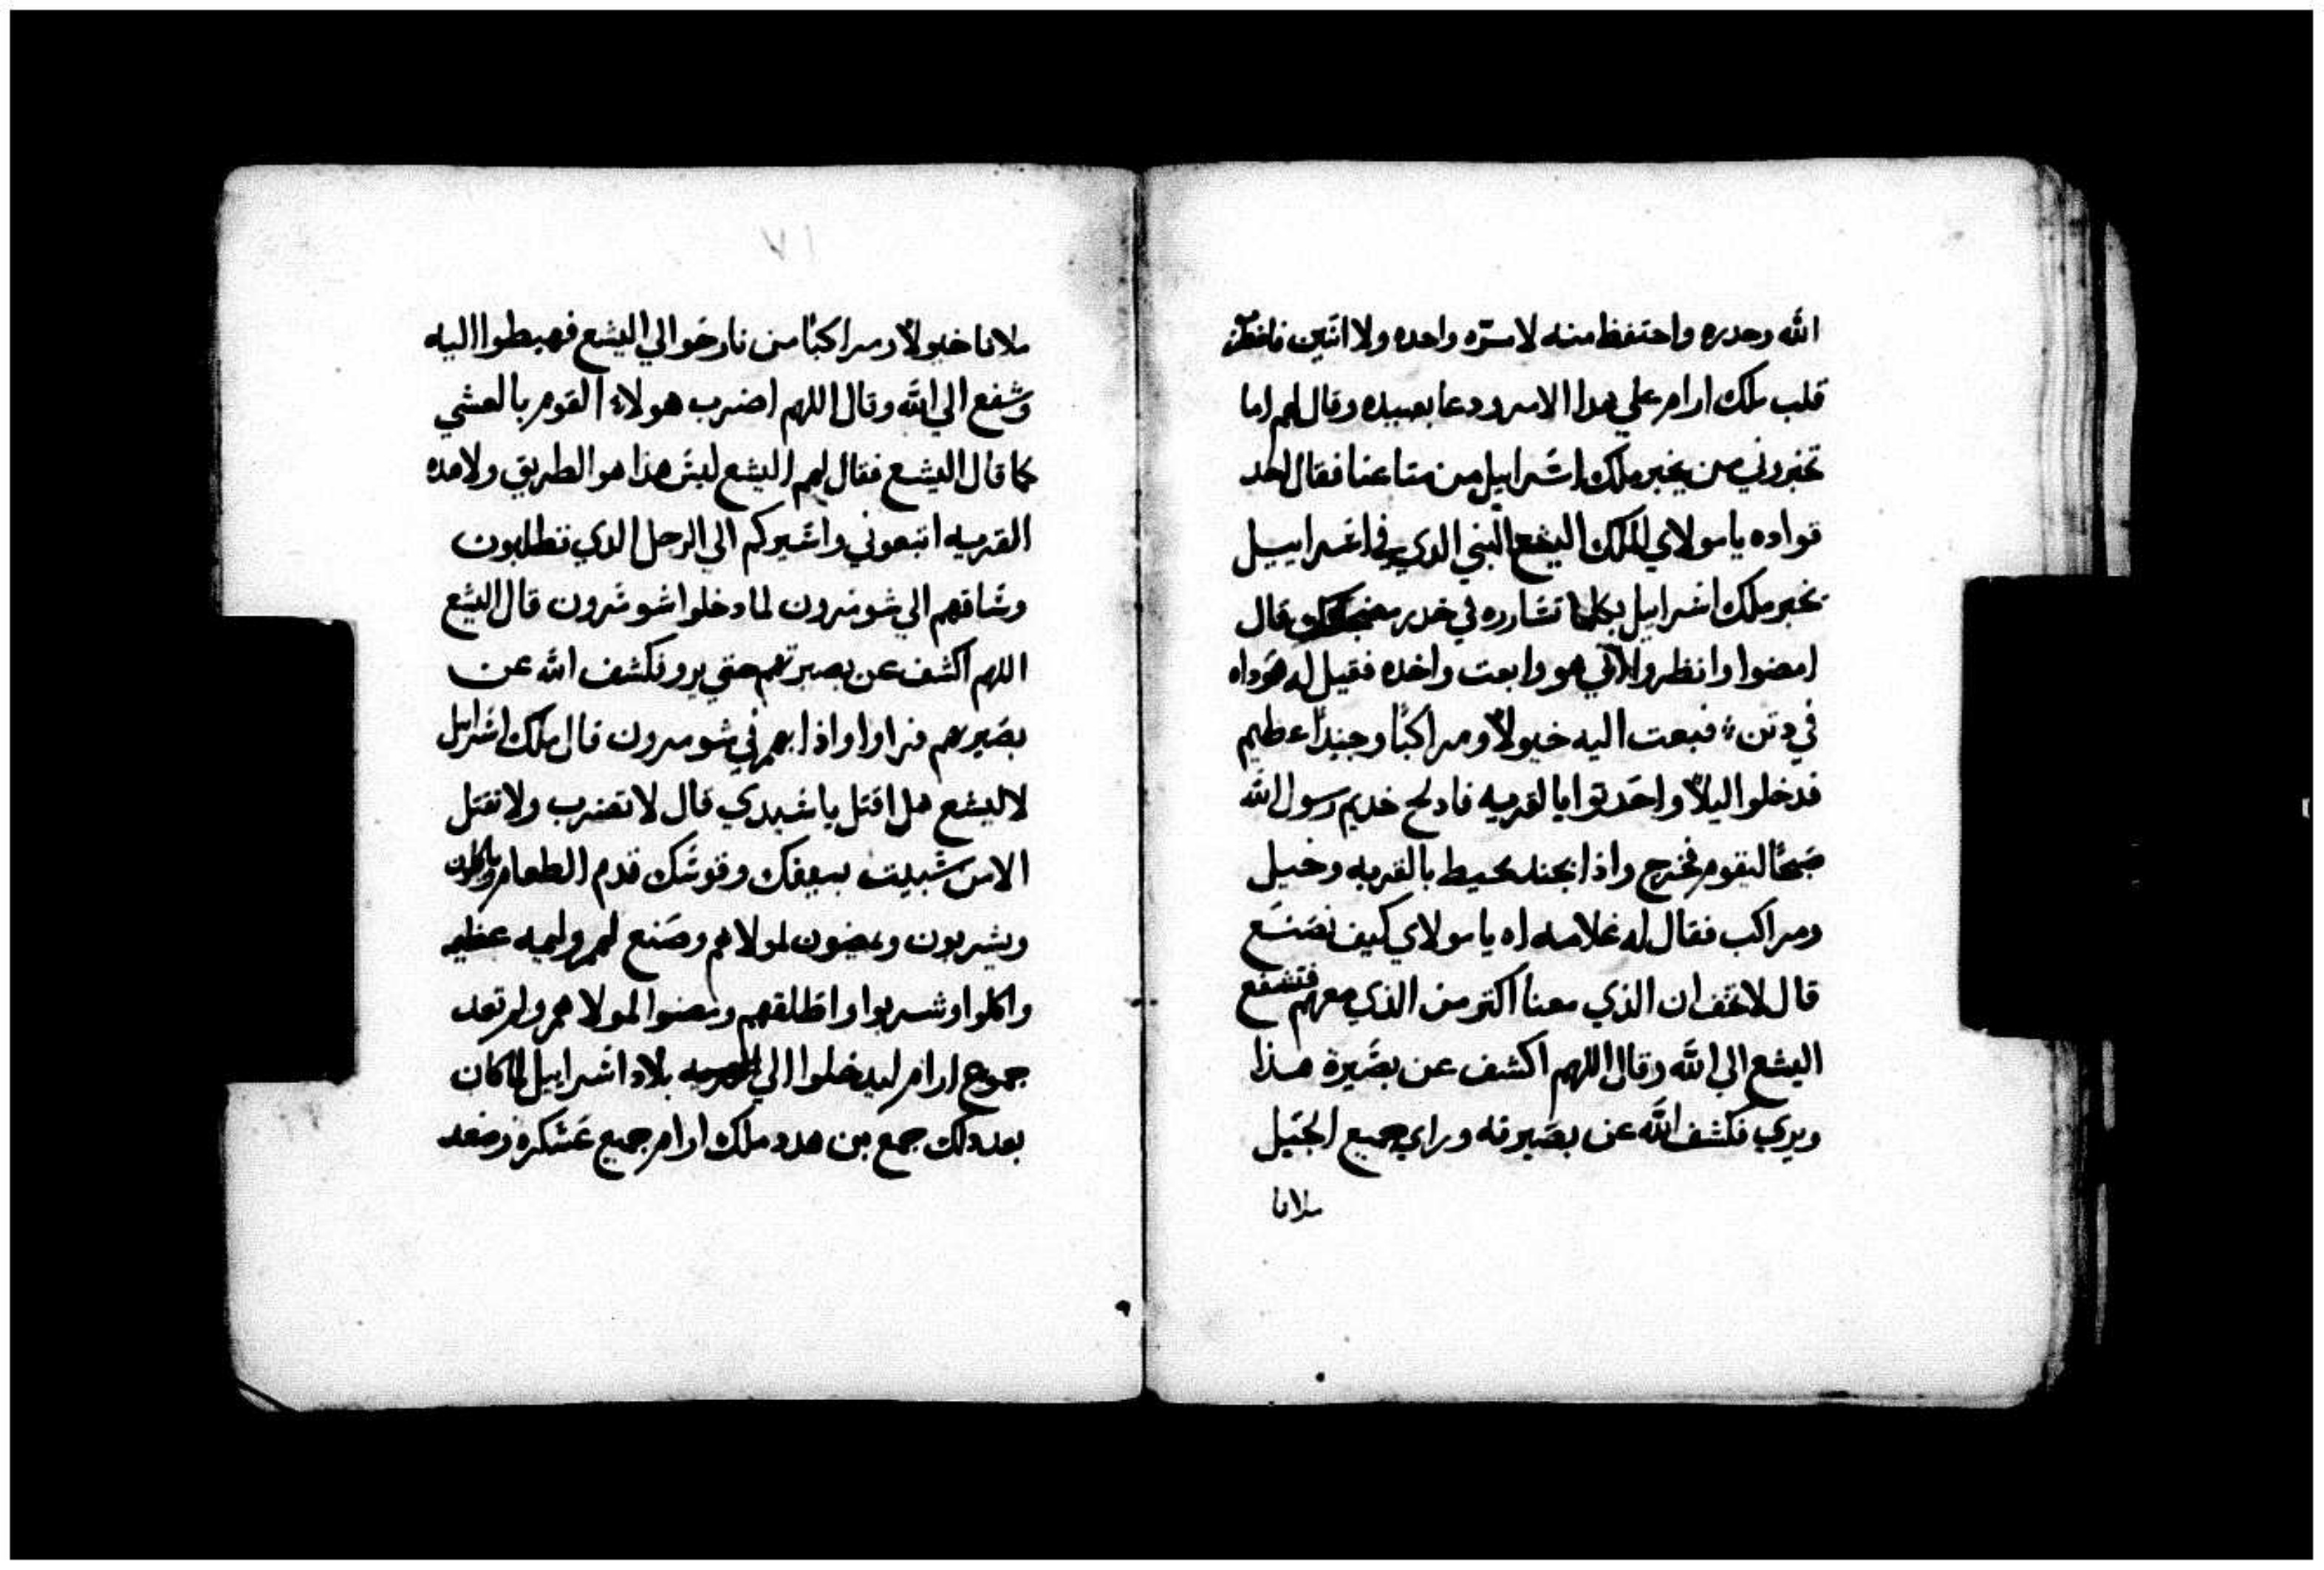 الله وحدره واحتفظ منه لا مرّه واحده ولا اتنين
قلب ملك ارام علي هدا الامر ودعا بعبيده وقال لهم اما
تخبروني من يخبر ملك اسرابيل من متاعنا فقال احد
قواده يا مولاي الملك اليشع النبي الدي في اسراييل
يخبر ملك اسرابيل بكلما تشاوره في خدر قال
امضوا وانظروا اي هو وابعت واخده فقيل له هوداه
في دتن فبعت اليه خيولاً ومراكبًا وجندًا عظيم
فدخلوا ليلاً واحدقوا بالقريه فادلج خديم رسول الله
صبحًا ليقوم فخرج واذا بجند محيط بالقريه وخيل
ومراكب فقال له غلامه اه يا مولاي كيف نصنع
قال لا تخف ان الذي معنا اكتر من الذي معهم فتشفع
اليشع الي الله وقال اللهم اكشف عن بصيرة هذا
ويري فكشف الله عن بصيرته وراي جميع الجبل
ملانا
٧١
ملانا خيولاً ومراكبًا من نار حوالي اليشع فهبطوا اليه
وشفع الي الله وقال اللهم اضرب هولاء القوم بالعشي
كما قال اليشع فقال لهم اليشع ليش هذا هو الطريق ولا هده
القريه اتبعوني واسيركم الي الرجل الدي تطلبون
وساقهم الي شومرون لما دخلوا شومرون قال اليشع
اللهم اكشف عن بصيرتهم حتي يرو فكشف الله عن
بصيرهم فراوا واذا بهم في شومرون قال ملك اسرايل
لاليشع هل اقتل يا سيدي قال لا تضرب ولا تقتل
الا من سبيت بسيفك وقوسك قدم الطعام وياكلون
ويشربون ويمضون لمولاهم وصنع لهم وليمه عظيمه
واكلوا وشربوا واطلقهم ومضوا لمولاهم ولم تعد
جموع ارام ليدخلوا الي بلاد اسرابيل لما كان
بعد دلك جمع بن هدد ملك ارام جميع عسكره وصعد